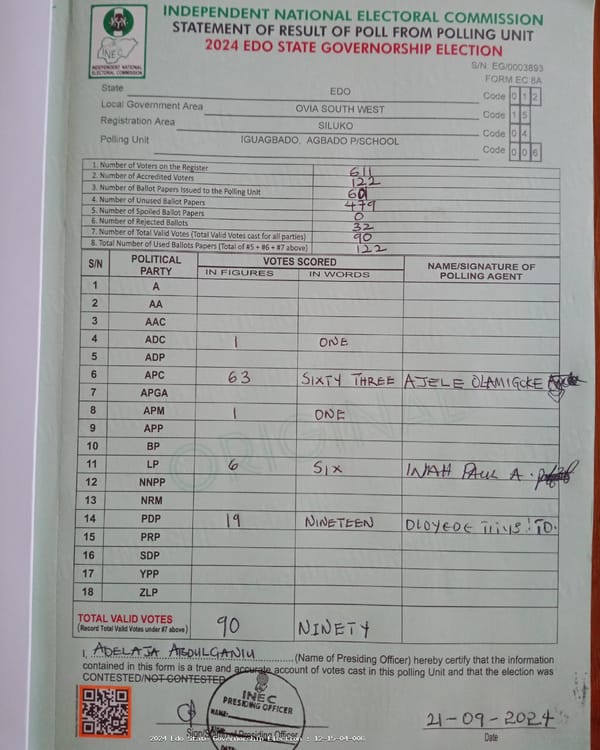 INDEPENDENT NATIONAL ELECTORAL COMMISSION
STATEMENT OF RESULT OF POLL FROM POLLING UNIT
2024 EDO STATE GOVERNORSHIP ELECTION
INEC
INDEPENDENT NATIONAL
ELECTORAL COMMISSION
S/N: EG/0003893
FORM EC 8A
State EDO Code 0 1 2
Local Government Area OVIA SOUTH WEST Code 1 5
Registration Area SILUKO Code 0 4
Polling Unit IGUAGBADO, AGBADO P/SCHOOL Code 0 0 6
1. Number of Voters on the Register 611
2. Number of Accredited Voters 122
3. Number of Ballot Papers Issued to the Polling Unit 601
4. Number of Unused Ballot Papers 479
5. Number of Spoiled Ballot Papers 0
6. Number of Rejected Ballots 32
7. Number of Total Valid Votes (Total Valid Votes cast for all parties) 90
8. Total Number of Used Ballots Papers (Total of #5 + #6 + #7 above) 122
S/N POLITICAL PARTY VOTES SCORED NAME/SIGNATURE OF POLLING AGENT
IN FIGURES IN WORDS
1 A
2 AA
3 AAC
4 ADC 1 ONE
5 ADP
6 APC 63 SIXTY THREE AJELE OLAMIGOKE
7 APGA
8 APM 1 ONE
9 APP
10 BP
11 LP 6 SIX INAH PAUL A.
12 NNPP
13 NRM
14 PDP 19 NINETEEN
15 PRP
16 SDP
17 YPP
18 ZLP
ORIGINAL
TOTAL VALID VOTES 90 NINETY
(Record Total Valid Votes under #7 above)
I, ADELAJA ABDULGANIU (Name of Presiding Officer) hereby certify that the information
contained in this form is a true and accurate account of votes cast in this polling Unit and that the election was
CONTESTED/NOT CONTESTED
INEC
PRESIDING OFFICER
NAME:
Presiding Officer
21-09-2024
Date
2024 Edo State Governorship Election : 12-15-04-006